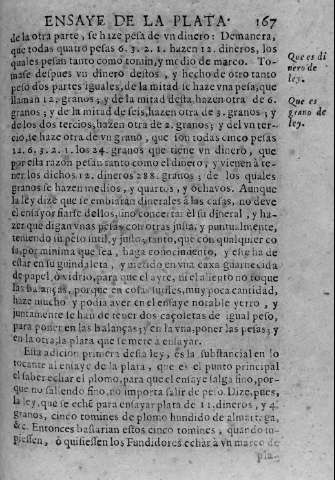 ENSAYE DE LA PLATA. 167
de la otra parte, se haze pesa de vn dinero: Demanera,
que todas quatro pesas 6. 3. 2. 1. hazen 12. dineros, los
quales pesan tanto como tomin, y medio de marco. To-
mase despues vn dinero destos, y hecho de otro tanto
peso dos partes iguales, de la vna se haze vna pesa, que
llaman 12. granos; y de la mitad desta, hazen otra de 6.
granos; y de la mitad de seis, hazen otra de 3. granos; y
de los dos tercios, hazen otra de 2. granos; y del vn ter-
cio, se haze otra de vn grano, que son todas cinco pesas
12. 6. 3. 2. 1. los 24. granos que tiene vn dinero, que
por esta razón pesan tanto como el dinero, y vienen à te-
ner los dichos 12. dineros 288. granos; de los quales
granos se hazen medios, y quartos, y ochavos. Aunque
la ley dize que se embiaràn dinerales à las casas, no deve
el ensayor fiarse dellos, sino concertar èl su dineral, y ha-
zer que digan vnas pesas con otras justa, y puntualmente,
teniendo su peso sutil, y justo, tanto, que con qualquier co
sa, por minima que sea, haga conocimiento, y este ha de
estar en su guindaleta, y metido en vna caxa guarnecida
de papel, ò vidro, para que el ayre, ni el aliento no toque
las balanças, porque en cosas sutiles, muy poca cantidad,
haze mucho y podia aver en el ensaye notable yerro, y
juntamente se han de tener dos caçoletas de igual peso,
para poner en las balanças; y en la vna, poner las pesas; y
en la otra, la plata que se mete à ensayar.
Esta adicion primera desta ley, es la substancial en lo
tocante al ensaye de la plata, que es el punto principal
el saber echar el plomo, para que el ensaye salga fino, por-
que no saliendo fino, no importa salir de peso. Dize, pues,
la ley, que se eche para ensayar plata de 11. dineros, y 4.
granos, cinco tomines de plomo hundido de almartaga,
&c. Entonces bastarian estos cinco tomines, quando su-
piessen, ò quisiessen los Fundidores echar à vn marco de
pla-
Que es di
nero de
ley.
Que es
grano de
ley.